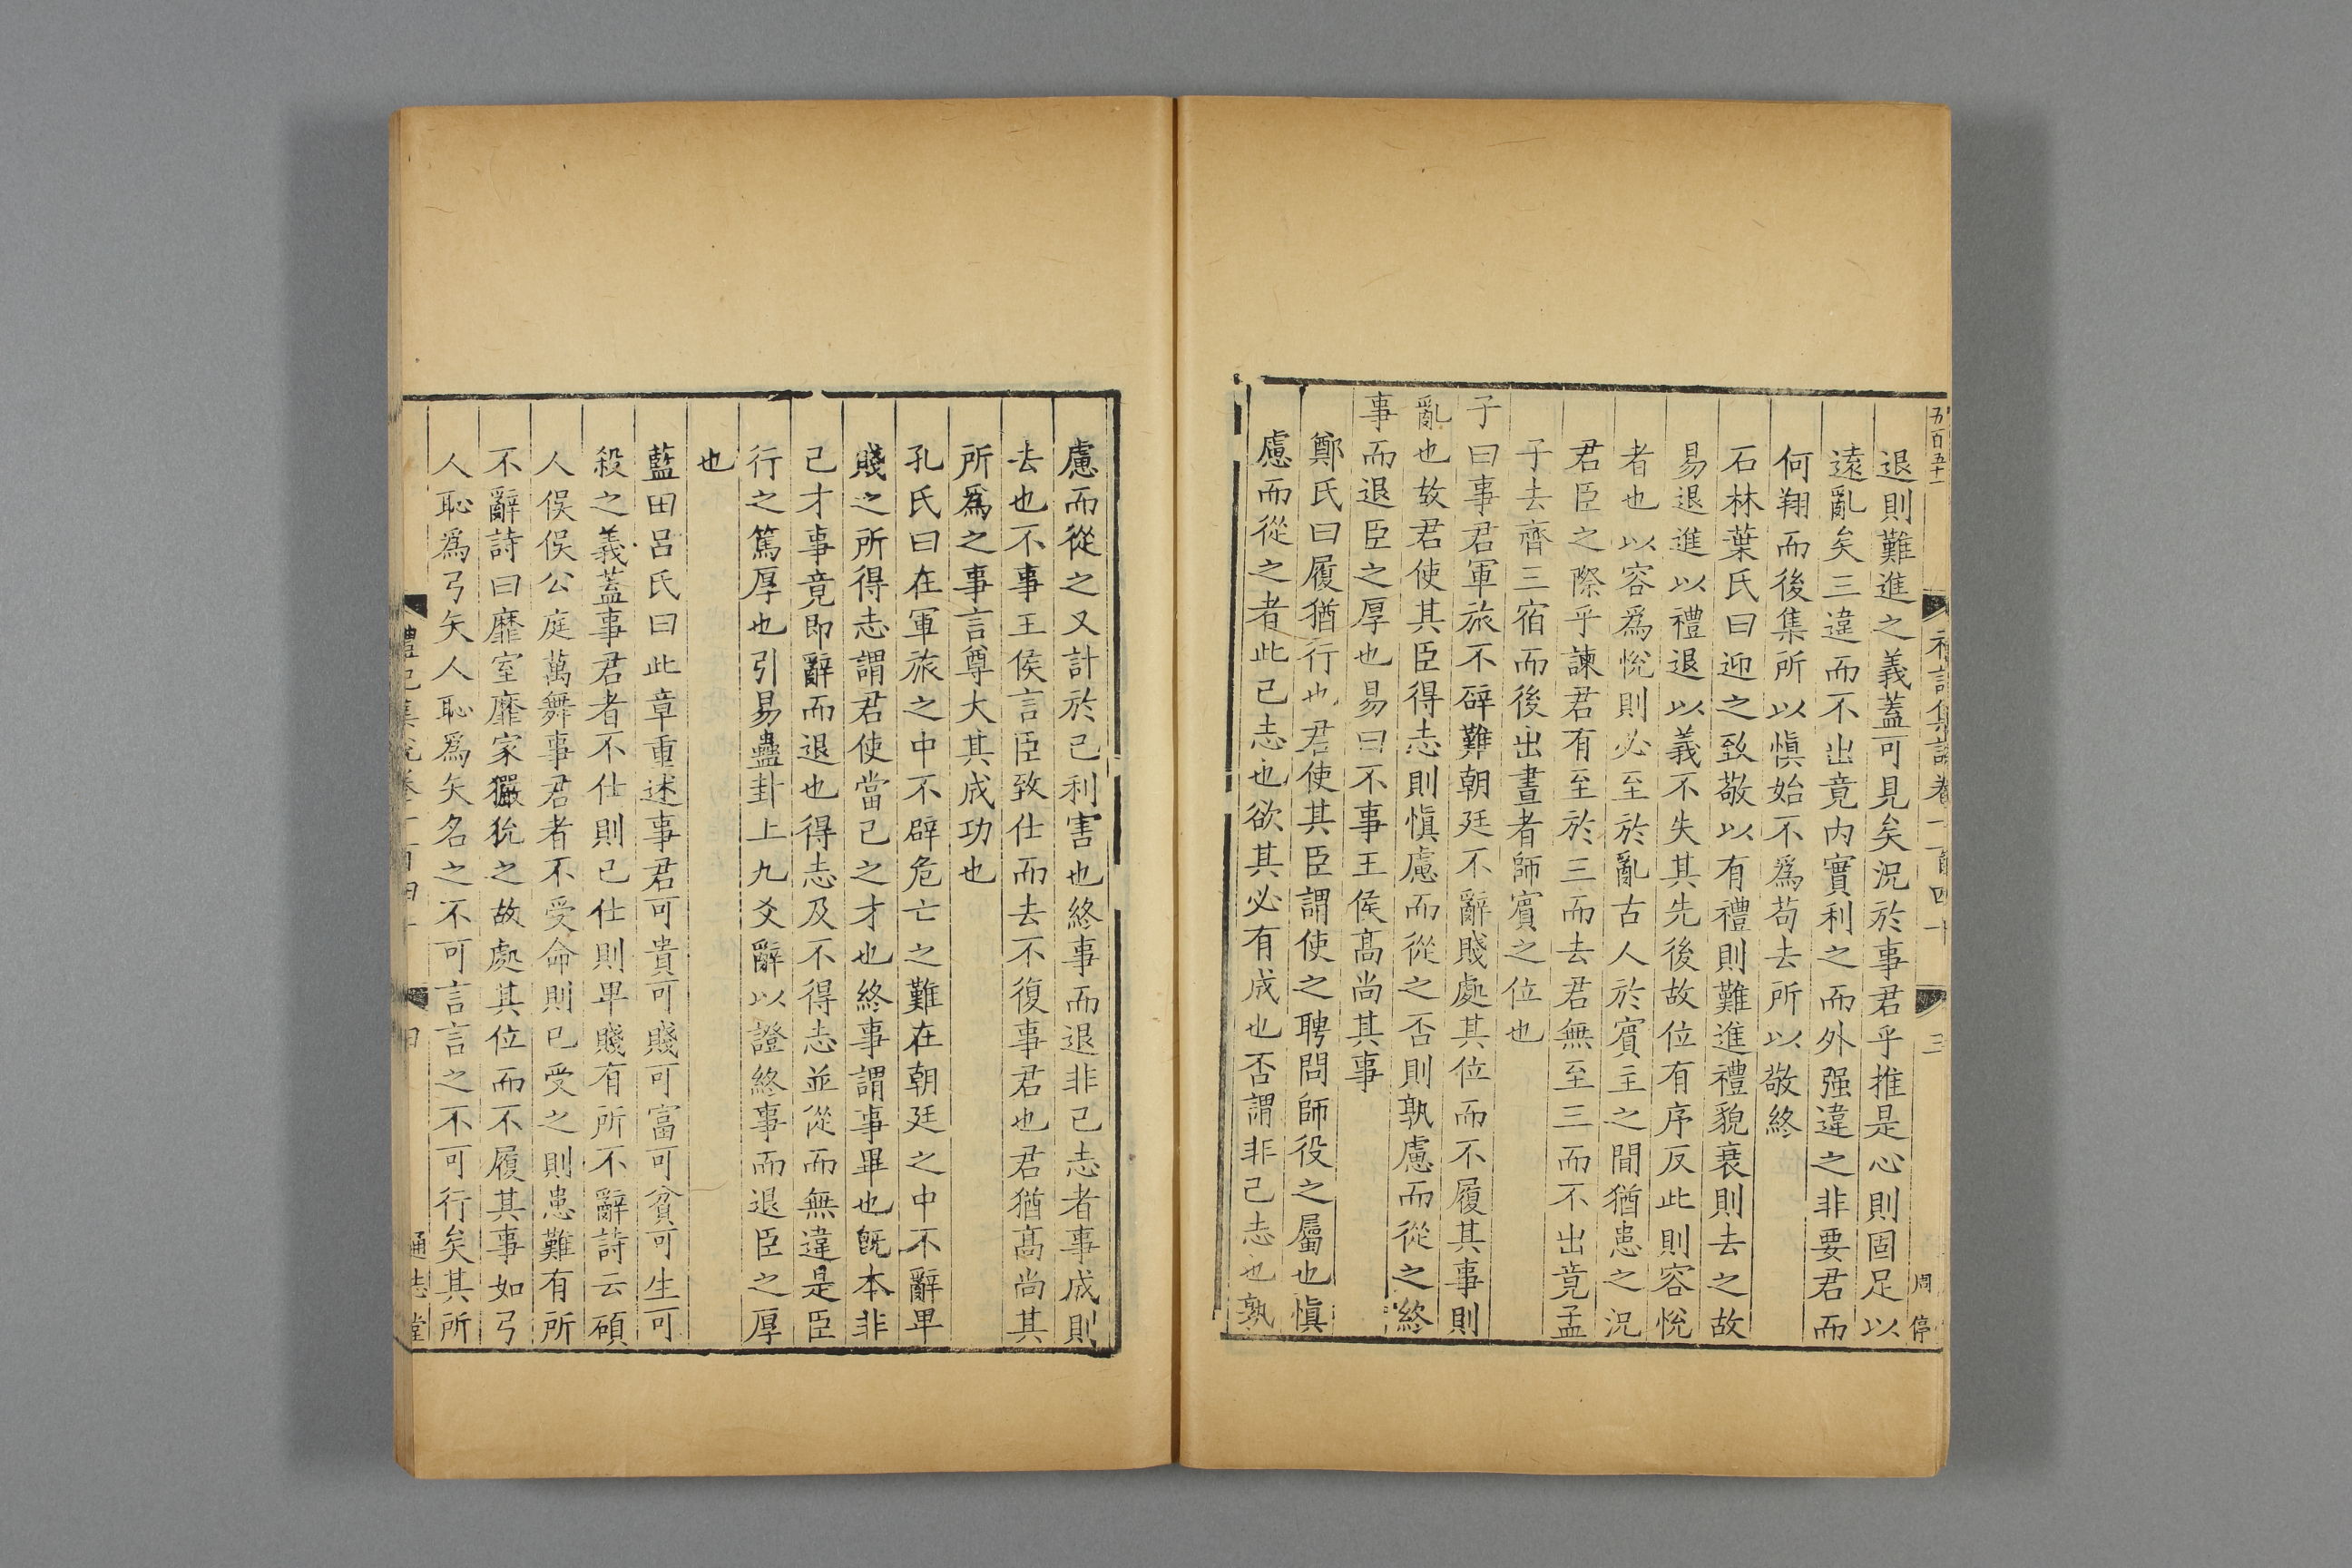 五百五十一
禮記集說卷一百四十
三
周停
退則難進之義蓋可見矣況於事君乎推是心則固足以
遠亂矣三違而不出竟內實利之而外强違之非要君而
何翔而後集所以愼始不爲苟去所以敬終
石林葉氏曰迎之致敬以有禮則難進禮貌衰則去之故
易退進以禮退以義不失其先後故位有序反此則容悅
者也以容爲悅則必至於亂古人於賓主之間猶患之況
君臣之際乎諫君有至於三而去君無至三而不出竟孟
子去齊三宿而後出晝者師賓之位也
子曰事君軍旅不辟難朝廷不辭賤處其位而不履其事則
亂也故君使其臣得志則愼慮而從之否則孰慮而從之終
事而退臣之厚也易曰不事王侯高尚其事
鄭氏曰履猶行也君使其臣謂使之聘問師役之屬也愼
慮而從之者此己志也欲其必有成也否謂非己志也孰
慮而從之又計於己利害也終事而退非己志者事成則
去也不事王侯言臣致仕而去不復事君也君猶高尚其
所爲之事言尊大其成功也
孔氏曰在軍旅之中不辟危亡之難在朝廷之中不辭卑
賤之所得志謂君使當己之才也終事謂事畢也旣本非
己才事竟即辭而退也得志及不得志並從而無違是臣
行之篤厚也引易蠱卦上九爻辭以證終事而退臣之厚
也
藍田呂氏曰此章重述事君可貴可賤可富可貧可生可
殺之義蓋事君者不仕則已仕則卑賤有所不辭詩云碩
人俁俁公庭萬舞事君者不受命則已受之則患難有所
不辭詩曰靡室靡家玁狁之故處其位而不履其事如弓
人恥爲弓矢人恥爲矢名之不可言言之不可行矣其所
禮記集說卷一百四十
四
通志堂